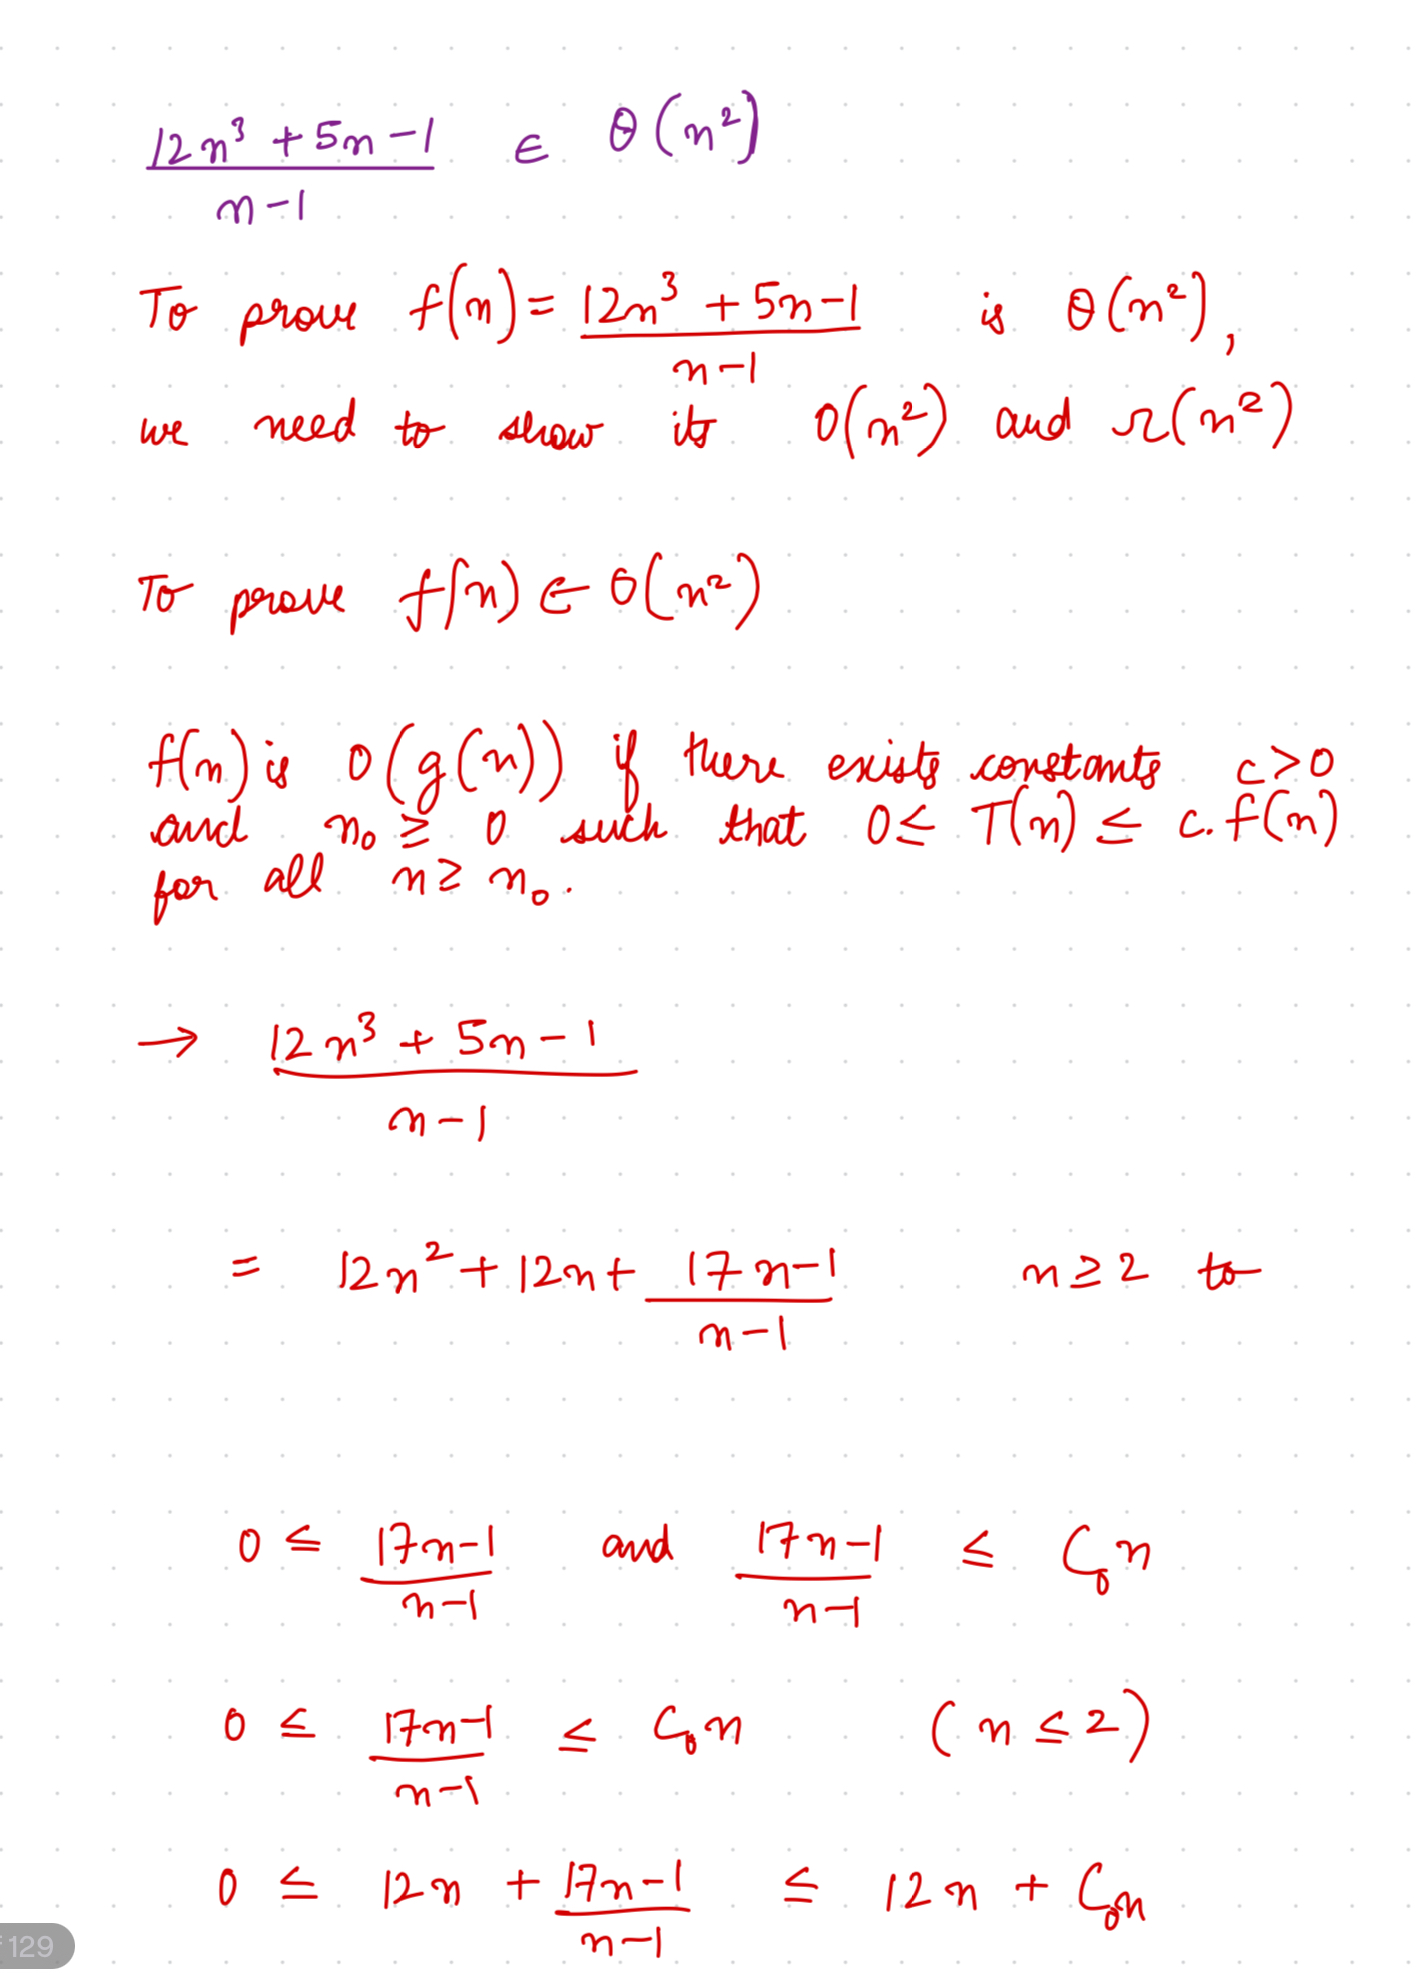 (12n³ + 5n - 1)/(n - 1) ∈ θ(n²)
To prove f(n) = (12n³ + 5n - 1)/(n - 1) is θ(n²),
we need to show its O(n²) and Ω(n²)
To prove f(n) ∈ O(n²)
f(n) is O(g(n)) if there exists constants c > 0
and n₀ ≥ 0 such that 0 ≤ T(n) ≤ c. f(n)
for all n ≥ n₀.
→ (12n³ + 5n - 1)/(n - 1)
= 12n² + 12n + (17n - 1)/(n - 1) n ≥ 2 to
0 ≤ (17n - 1)/(n - 1) and (17n - 1)/(n - 1) ≤ C₀n
0 ≤ (17n - 1)/(n - 1) ≤ C₀n (n ≤ 2)
0 ≤ 12n + (17n - 1)/(n - 1) ≤ 12n + C₀n
129